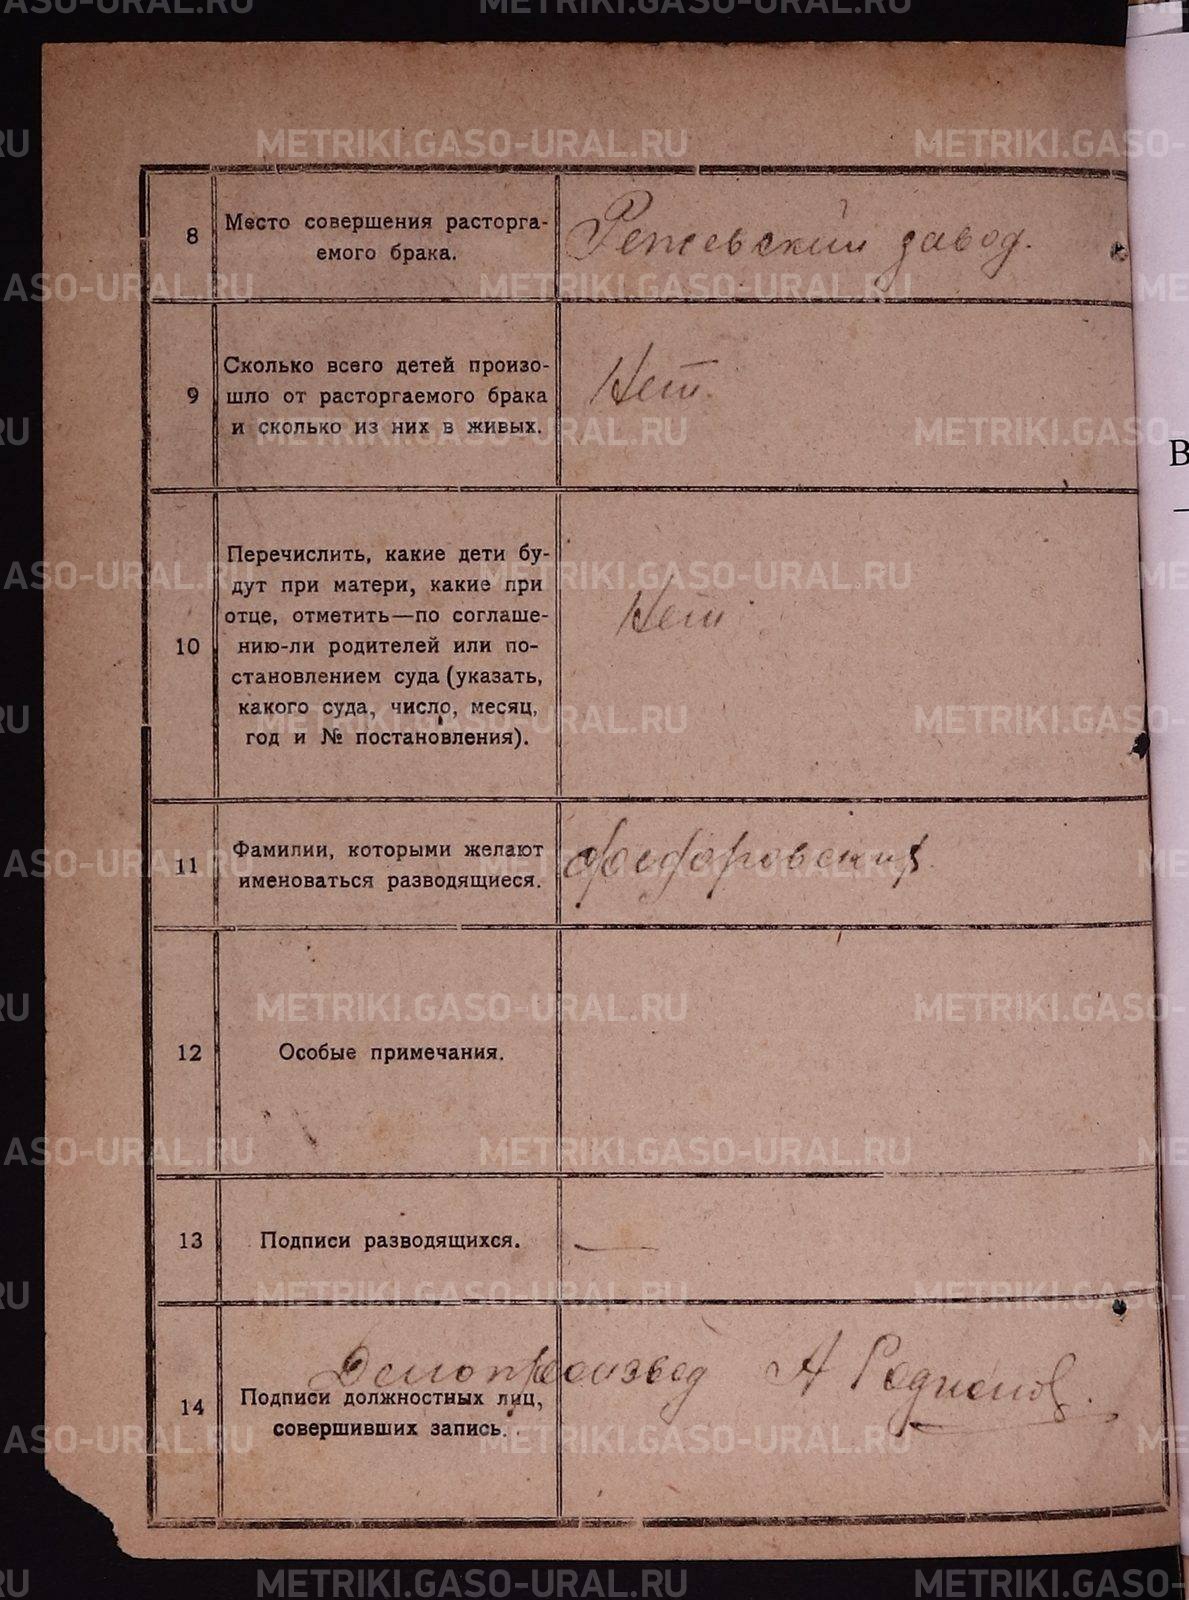 8
Место совершения расторга-
емого брака.
Режевский завод.
9
Сколько всего детей произо-
шло от расторгаемого брака
и сколько из них в живых.
Нет.
10
Перечислить, какие дети бу-
дут при матери, какие при
отце, отметить—по соглаше-
нию-ли родителей или по-
становлением суда (указать,
какого суда, число, месяц,
год и № постановления).
Нет
11
Фамилии, которыми желают
именоваться разводящиеся.
12
Особые примечания.
13
Подписи разводящихся.
—
14
Подписи должностных лиц,
совершивших запись.
Делопроизвод А Родионов.
В
METRIKI.GASO-URAL.RU